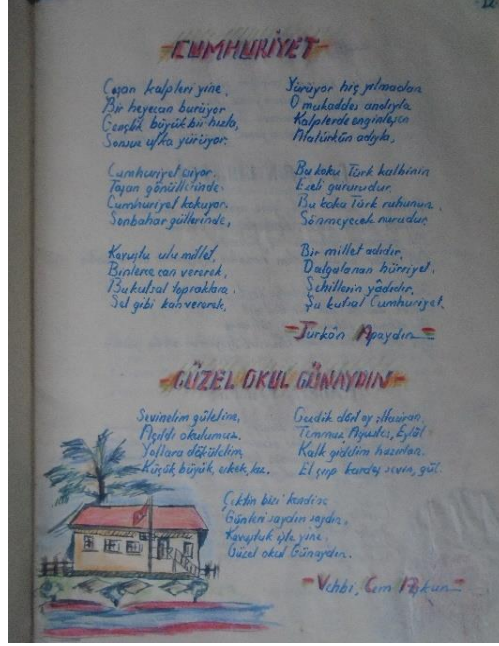 12
-CUMHURİYET-
Coşan kalpleri yine,
Bir heyecan bürüyor
Gençlik büyük bir hızla,
Sonsuz ufka yürüyor.
Cumhuriyet açıyor.
Taşan gönüllerinde.
Cumhuriyet kokuyor.
Sonbahar güllerinde,
Kavuştu ulu millet.
Binlerce can vererek,
Bu kutsal topraklara.
Sel gibi kan vererek.
Yürüyor hiç yılmadan
O mukaddes andıyla
Kalplerde enginleşen
Atatürkün adıyla,
Bu koku Türk kalbinin
Ezeli gururudur.
Bu koku Türk ruhunun,
Sönmeyecek nurudur.
Bir millet adıdır,
Dalgalanan hürriyet,
Şehitlerin yâdıdır,
Şu kutsal Cumhuriyet.
-Türkân Apaydın-
-GÜZEL OKUL GÜNAYDIN-
Sevinelim gülelim,
Açıldı okulumuz.
Yollara döküldelim,
Küçük, büyük, erkek, kız.
Gezdik dört ay Haziran,
Temmuz, Ağustos, Eylül
Kalk gidelim hazırlan.
El çırp kardeş sevin, gül.
Çektin bizi kendine
Günleri saydın saydın,
Kavuştuk işte yine.
Güzel okul Günaydın.
-Vehbi, Cem Aşkun-